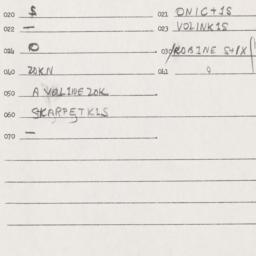 020 $ 021 ONIC+1S
022 — 023 VOLINKIS
024 O 030 ROBINE S+/X
040 20KN 041 0
050 A VOLINE 20K
060 SKARPETKIS
070 —